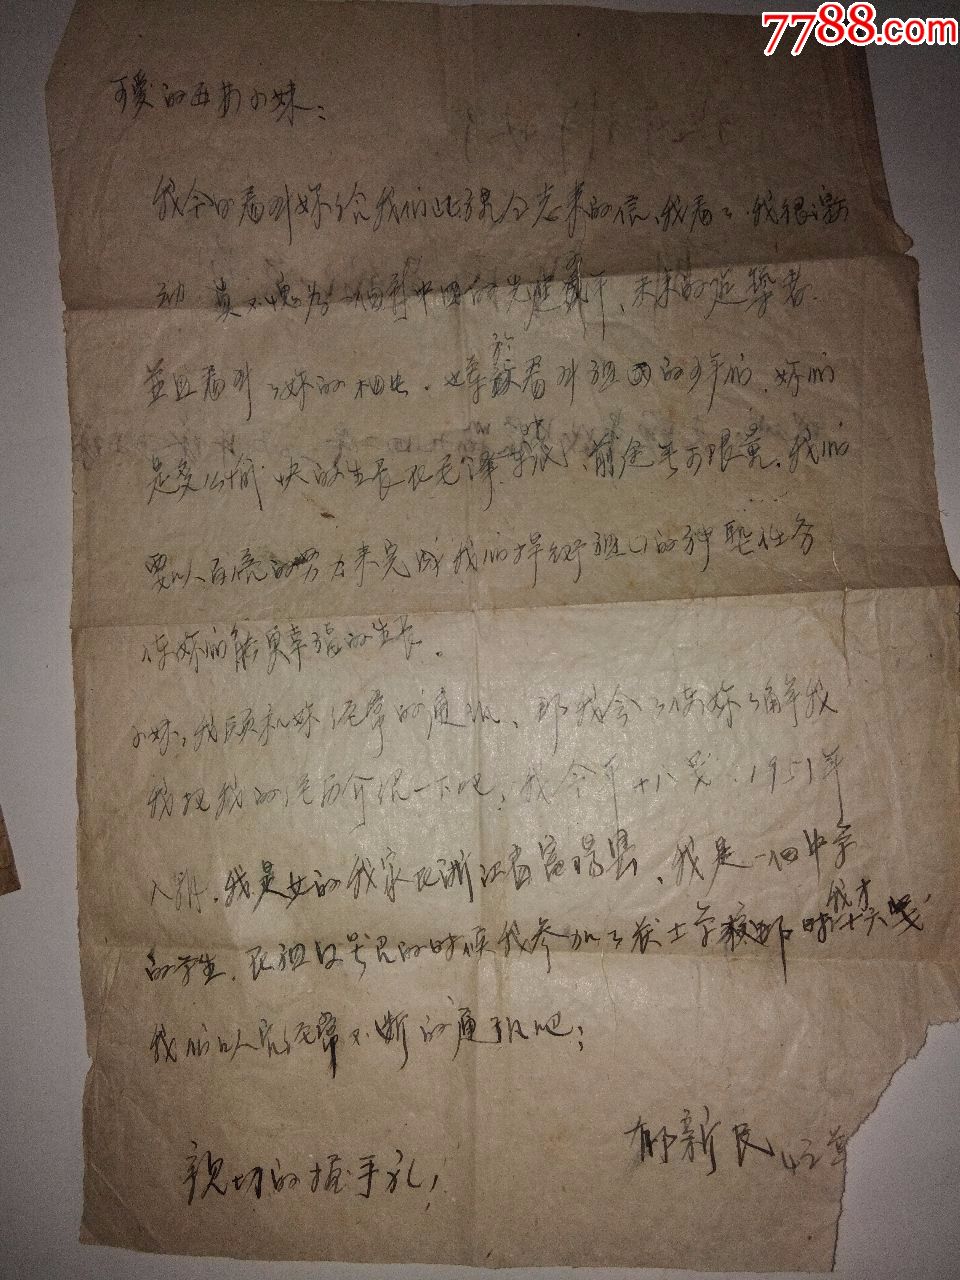 7788.com
可爱的 小妹：
我今日看到妳给我们 来的信、我看了．我很激
动 真不愧为 新中国的先进青年、未来的建筑者．
並且看到了妳的相片．
看到祖国的少年们．妳们
是多么愉快的生长在毛泽东时代、前途无可限量．我们
要以百倍的努力来完成我们捍衛祖国的神聖任务
使妳们能更幸福的生长．
小妹：我願和妳经常的通讯、那我会 使妳了解我
我把我的经历介绍一下吧：我今年十八岁．1951年
入朝．我是女的我家在浙江省富陽县、我是一個中学
的学生．在祖国 的时候我参加了 士学校那时我才十六岁
我们以后经常不断的通讯吧；
郁新民
親切的握手礼！